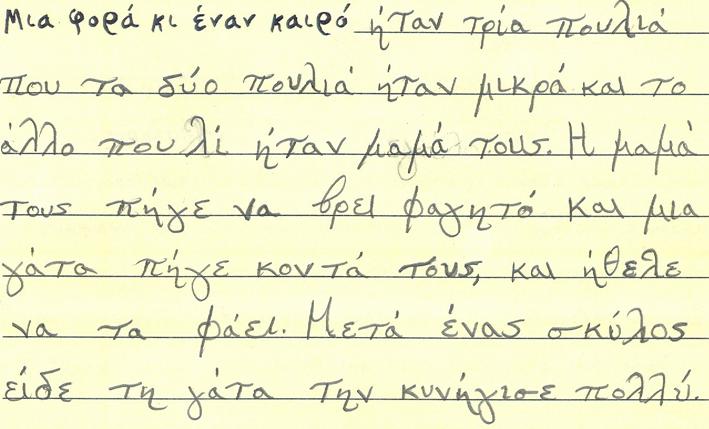 Μια φορά κι έναν καιρό ήταν τρία πουλιά
που τα δύο πουλιά ήταν μικρά και το
άλλο πουλί ήταν μαμά τους. Η μαμά
τους πήγε να βρει φαγητό και μια
γάτα πήγε κοντά τους, και ήθελε
να τα φάει. Μετά ένας σκύλος
είδε τη γάτα την κυνήγισε πολλύ.